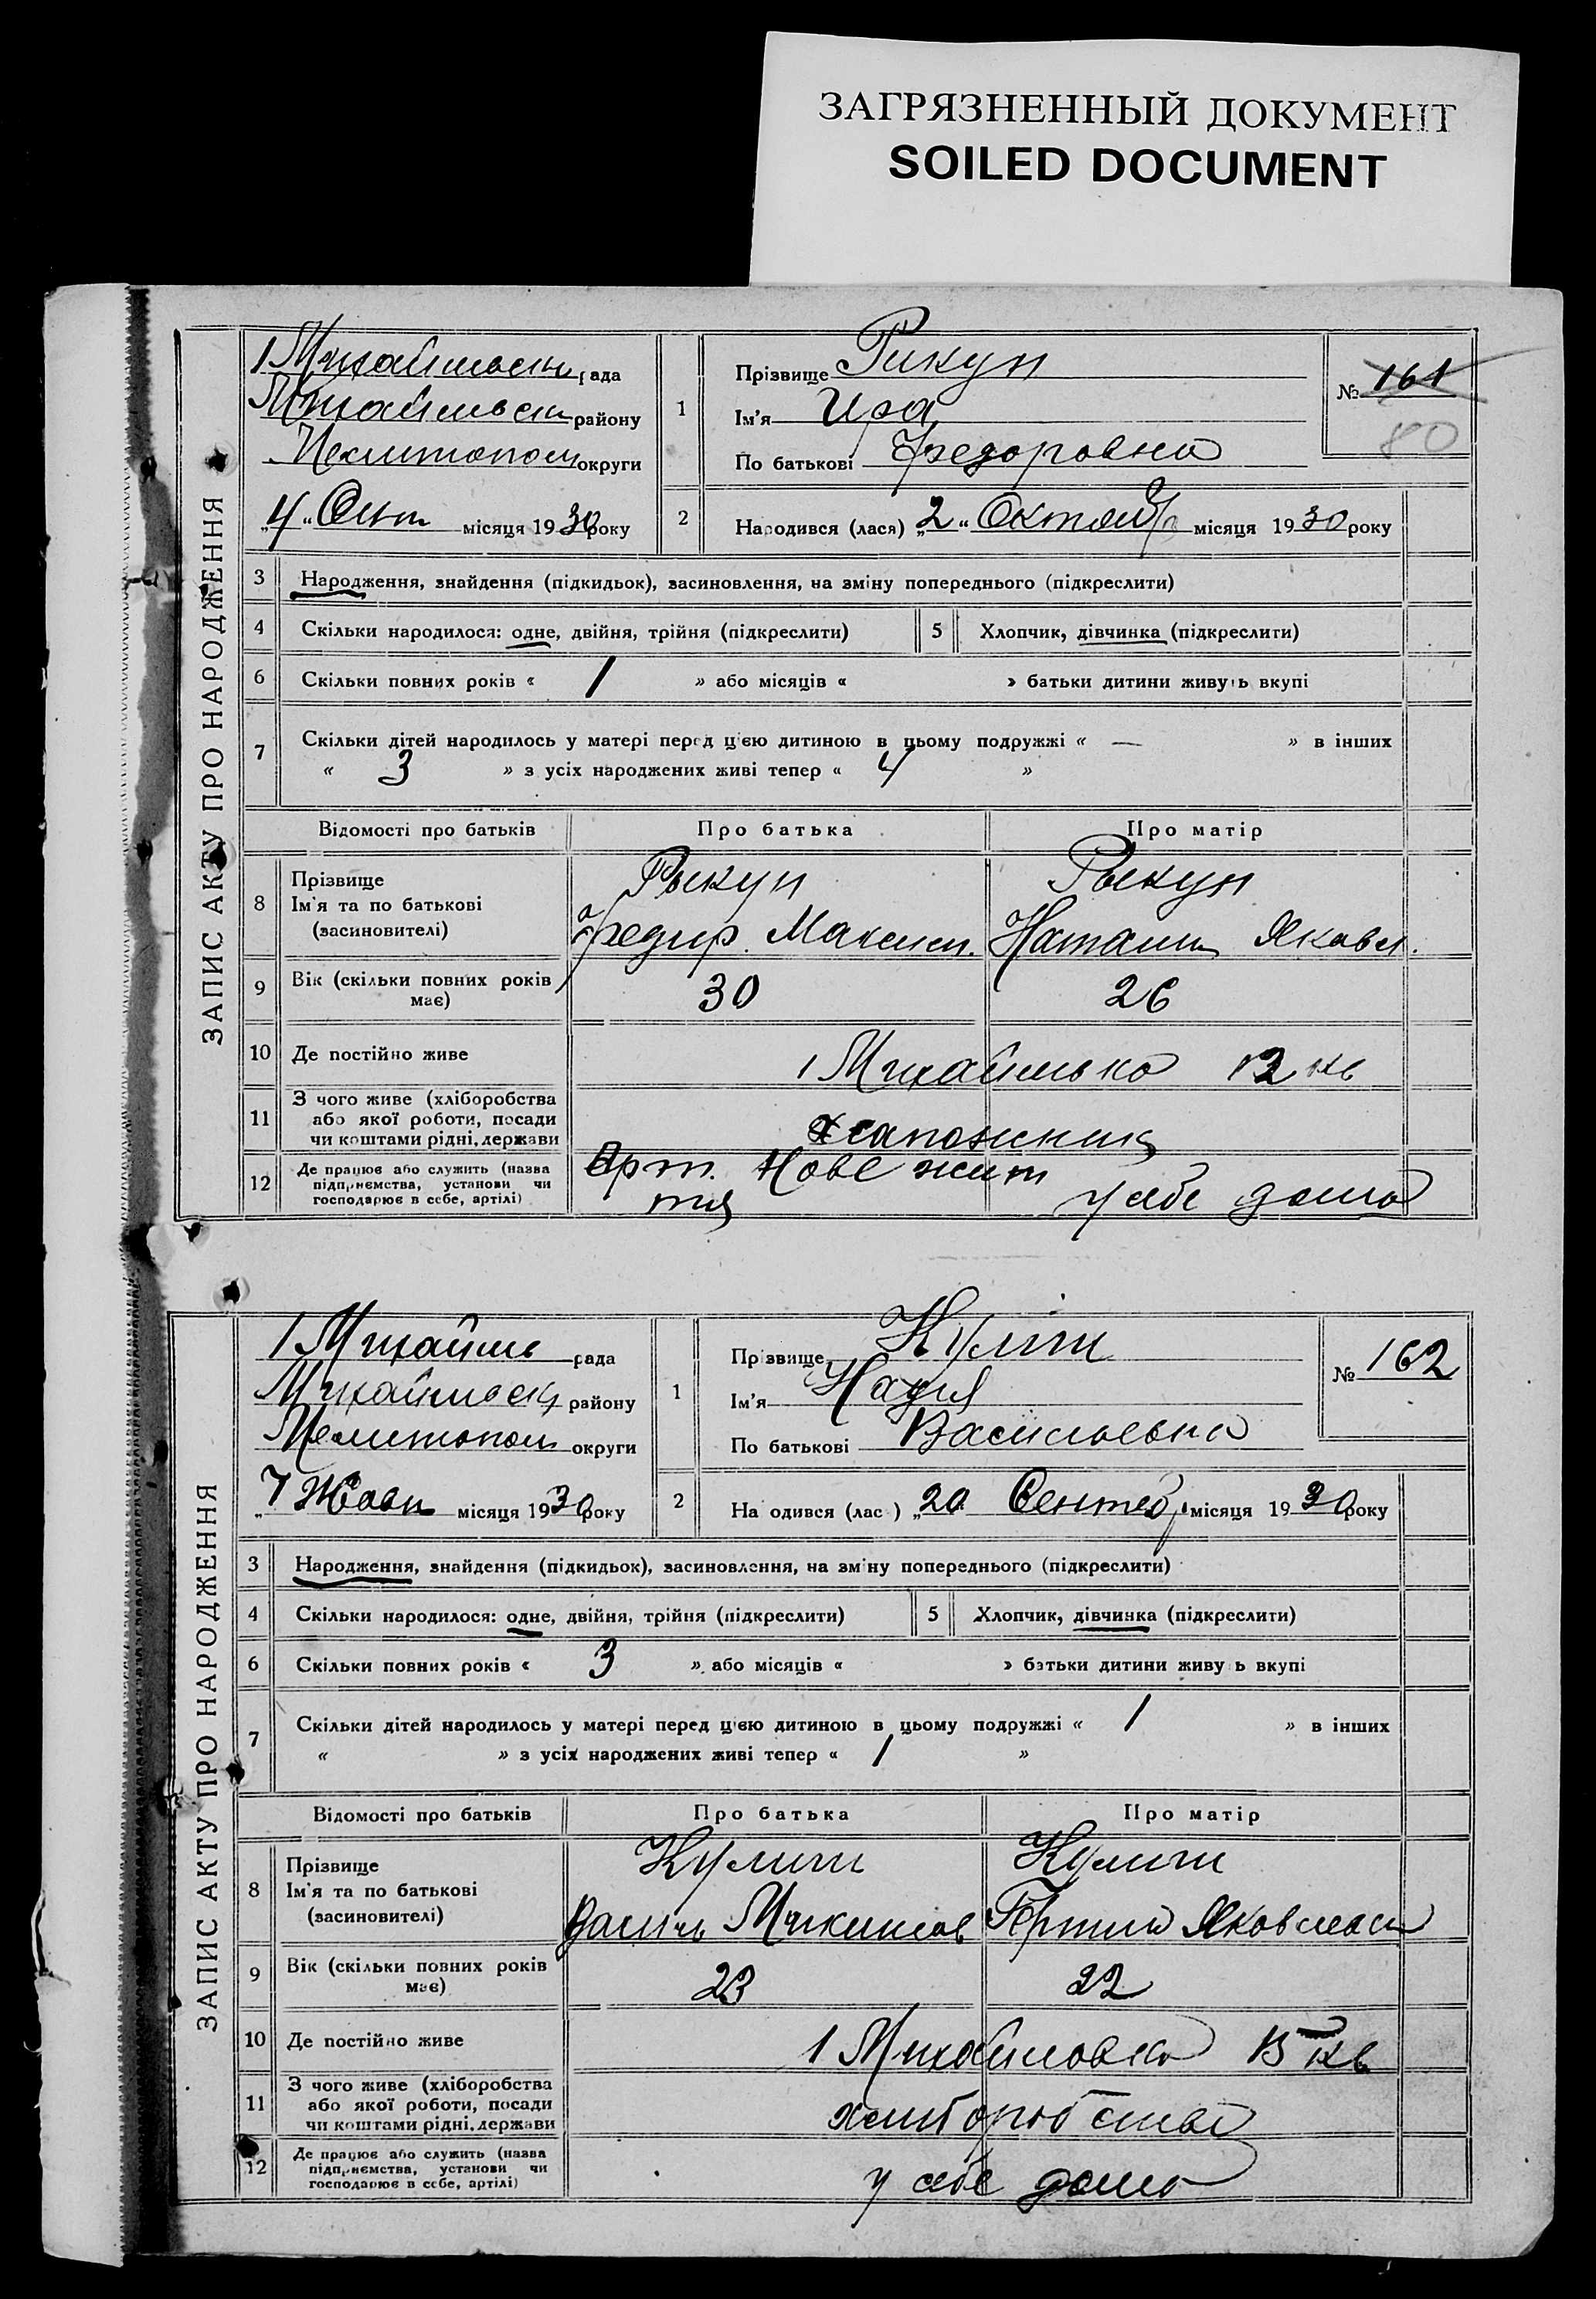 ЗАГРЯЗНЕННЫЙ ДОКУМЕНТ
SOILED DOCUMENT
ЗАПИС АКТУ ПРО НАРОДЖЕННЯ
1 Михайлвськ рада
Михайлвськ району
Мелитопол округи
„4“ Окт місяця 1930 року
1
Прізвище Рикун
Ім'я Ира
По батькові Федоровна
№ 161
80
2
Народився (лася) „2“ Октяб місяця 1930 року
3 Народження, знайдення (підкидьок), засиновлення, на зміну попереднього (підкреслити)
4 Скільки народилося: одне, двійня, трійня (підкреслити) 5 Хлопчик, дівчинка (підкреслити)
6 Скільки повних років « 1 » або місяців « » батьки дитини живуть вкупі
7 Скільки дітей народилось у матері перед цією дитиною в цьому подружжі « — » в інших
« 3 » з усіх народжених живі тепер « 4 »
Відомості про батьків Про батька Про матір
8 Прізвище
Ім'я та по батькові
(засиновителі)
Рыкун
Федир Максим.
Рыкун
Наташа Яковл.
9 Вік (скільки повних років має) 30 26
10 Де постійно живе 1 Михайлвка 12 кв
11 З чого живе (хліборобства
або якої роботи, посади
чи коштами рідні, держави
сапожник
12 Де працює або служить (назва
підприємства, установи чи
господарює в себе, артілі)
Арт. Нове жит
тя
у себе дома
ЗАПИС АКТУ ПРО НАРОДЖЕННЯ
1 Михайлв рада
Михайлвськ району
Мелитопол округи
„7 Жовт місяця 1930 року
1
Прізвище Кулиш
Ім'я Надия
По батькові Васильевна
№ 162
2
Народився (лас ) „20 Сентяб місяця 1930 року
3 Народження, знайдення (підкидьок), засиновлення, на зміну попереднього (підкреслити)
4 Скільки народилося: одне, двійня, трійня (підкреслити) 5 Хлопчик, дівчинка (підкреслити)
6 Скільки повних років « 3 » або місяців « » батьки дитини живу ь вкупі
7 Скільки дітей народилось у матері перед цією дитиною в цьому подружжі « 1 » в інших
« » з усіх народжених живі тепер « 1 »
Відомості про батьків Про батька Про матір
8 Прізвище
Ім'я та по батькові
(засиновителі)
Кулиш
Василь
Кулиш
Яковлевна
9 Вік (скільки повних років має) 23 22
10 Де постійно живе 1 Михайловка 13 кв
11 З чого живе (хліборобства
або якої роботи, посади
чи коштами рідні, держави
хлиборобство
12 Де працює або служить (назва
підприємства, установи чи
господарює в себе, артілі)
у себе дома